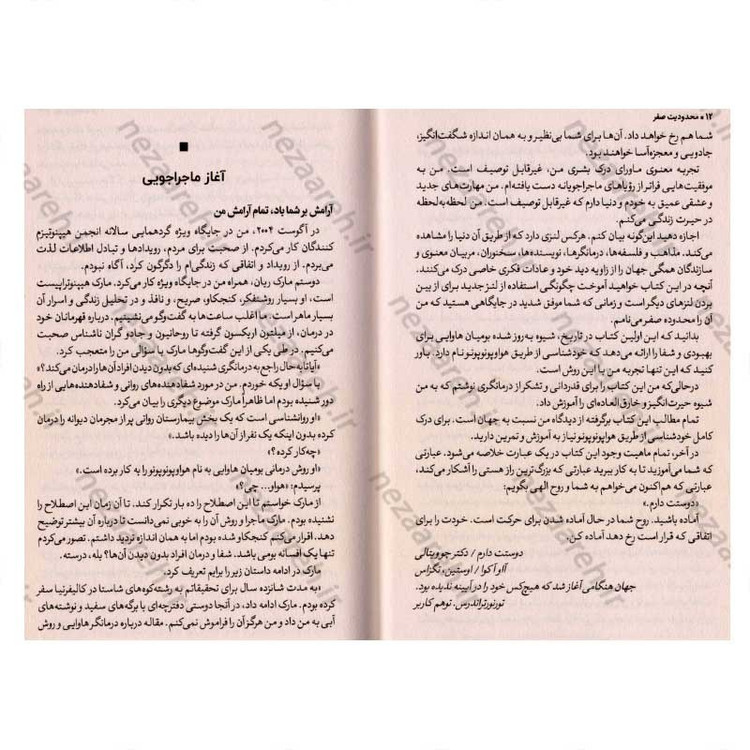 ۱۲ • محدودیت صفر
شما هم رخ خواهد داد. آن‌ها برای شما بی‌نظیر و به همان اندازه شگفت‌انگیز،
جادویی و معجزه‌آسا خواهند بود.
تجربه معنوی ماورای درک بشری من، غیرقابل توصیف است. من به
موفقیت‌هایی فراتر از رؤیاهای ماجراجویانه دست یافته‌ام. من مهارت‌های جدید
و عشقی عمیق به خودم و دنیا دارم که غیرقابل توصیف است. من لحظه‌به‌لحظه
در حیرت زندگی می‌کنم.
اجازه دهید این‌گونه بیان کنم. هرکس لنزی دارد که از طریق آن دنیا را مشاهده
می‌کند. مذاهب و فلسفه‌ها، درمانگرها، نویسنده، سخنوران، مربیان معنوی و
سازندگان همگی جهان را از زاویه دید خود و عادات فکری خاصی درک می‌کنند.
آنچه در این کتاب خواهید آموخت چگونگی استفاده از لنز جدید برای از بین
بردن لنزهای دیگر است و زمانی که شما موفق شدید در جایگاهی هستید که من
آن را محدوده صفر می‌نامم.
بدانید که این اولین کتاب در تاریخ، شیوه به‌روز شده بومیان هاوایی برای
بهبودی و شفا را ارائه می‌دهد که خودشناسی از طریق هواوپونوپونو نام دارد. باور
کنید که این تنها تجربه من با این روش است.
درحالی‌که من این کتاب را برای قدردانی و تشکر از درمانگری نوشتم که به من
شیوه حیرت‌انگیز و خارق العاده‌ای را آموزش داد.
تمام مطالب این کتاب برگرفته از دیدگاه من نسبت به جهان است. برای درک
کامل خودشناسی از طریق هواوپونوپونو نیاز به آموزش و تمرین دارید.
در آخر، تمام ماهیت وجود این کتاب در یک عبارت خلاصه می‌شود. عبارتی
که شما می‌آموزید تا به کار ببرید عبارتی که بزرگ‌ترین راز هستی را آشکار می‌کند،
عبارتی که هم‌اکنون می‌خواهم به شما و روح الهی بگویم:
«دوستت دارم.»
آماده باشید. روح شما در حال آماده شدن برای حرکت است. خودت را برای
اتفاقی که قرار است رخ دهد آماده کن.
دوستت دارم / دکتر جو ویتالی
آئو آکوا / اوستین، تگزاس
جهان هنگامی آغاز شد که هیچ‌کس خود را در آیینه ندیده بود.
تور نورتراندرس. توهم کاربر
آغاز ماجراجویی
آرامش بر شما باد، تمام آرامش من
در آگوست ۲۰۰۴، من در جایگاه ویژه گردهمایی سالانه انجمن هیپنوتیزم
کنندگان کار می‌کردم. از صحبت برای مردم، رویدادها و تبادل اطلاعات لذت
می‌بردم. از رویداد و اتفاقی که زندگی‌ام را دگرگون کرد، آگاه نبودم.
دوستم مارک ریان، همراه من در جایگاه ویژه کار می‌کرد. مارک هیپنوتراپیست
است، او بسیار روشنفکر، کنجکاو، صریح، و نافذ و در تحلیل زندگی و اسرار آن
بسیار ماهر است. ما اغلب ساعت‌ها به گفت‌وگو می‌نشینیم. درباره قهرمانان خود
در درمان، از میلتون اریکسون گرفته تا روحانیون و جادو گران ناشناس صحبت
می‌کنیم. در طی یکی از این گفت‌وگوها مارک با سؤالی من را متعجب کرد.
«آیا تا به حال راجع به درمانگری شنیده‌ای که بدون دیدن افراد آن‌ها را درمان می‌کند؟»
با سؤال او یکه خوردم. من در مورد شفادهنده‌های روانی و شفادهنده‌هایی از راه
دور شنیده بودم اما ظاهراً مارک موضوع دیگری را بیان می‌کرد.
«او روانشناسی است که یک بخش بیمارستان روانی پر از مجرمان دیوانه را درمان
کرده بدون اینکه یک نفر از آن‌ها را دیده باشد.»
«چه‌کار کرده؟»
«او روش درمانی بومیان هوایی به نام هواوپونوپونو را به کار برده است.»
پرسیدم: «هواو... چی؟»
از مارک خواستم تا این اصطلاح را ده بار تکرار کند. تا آن زمان این اصطلاح را
نشنیده بودم. مارک ماجرا و روش آن را به خوبی نمی‌دانست تا درباره آن بیشتر توضیح
دهد. اقرار می‌کنم کنجکاو شده بودم اما به همان اندازه تردید داشتم. تصور می‌کردم
تنها یک افسانه بومی باشد. شفا و درمان افراد بدون دیدن آن‌ها؟ بله، درسته.
مارک در ادامه داستان زیر را برایم تعریف کرد.
«به مدت شانزده سال برای تحقیقاتم به رشته‌کوه‌های شاستا در کالیفرنیا سفر
کرده بودم. مارک ادامه داد، در آنجا دوستی دفترچه‌ای با برگه‌های سفید و نوشته‌های
آبی به من داد و من هرگز آن را فراموش نمی‌کنم. مقاله درباره درمانگر هاوایی و روش
nezaareh.ir